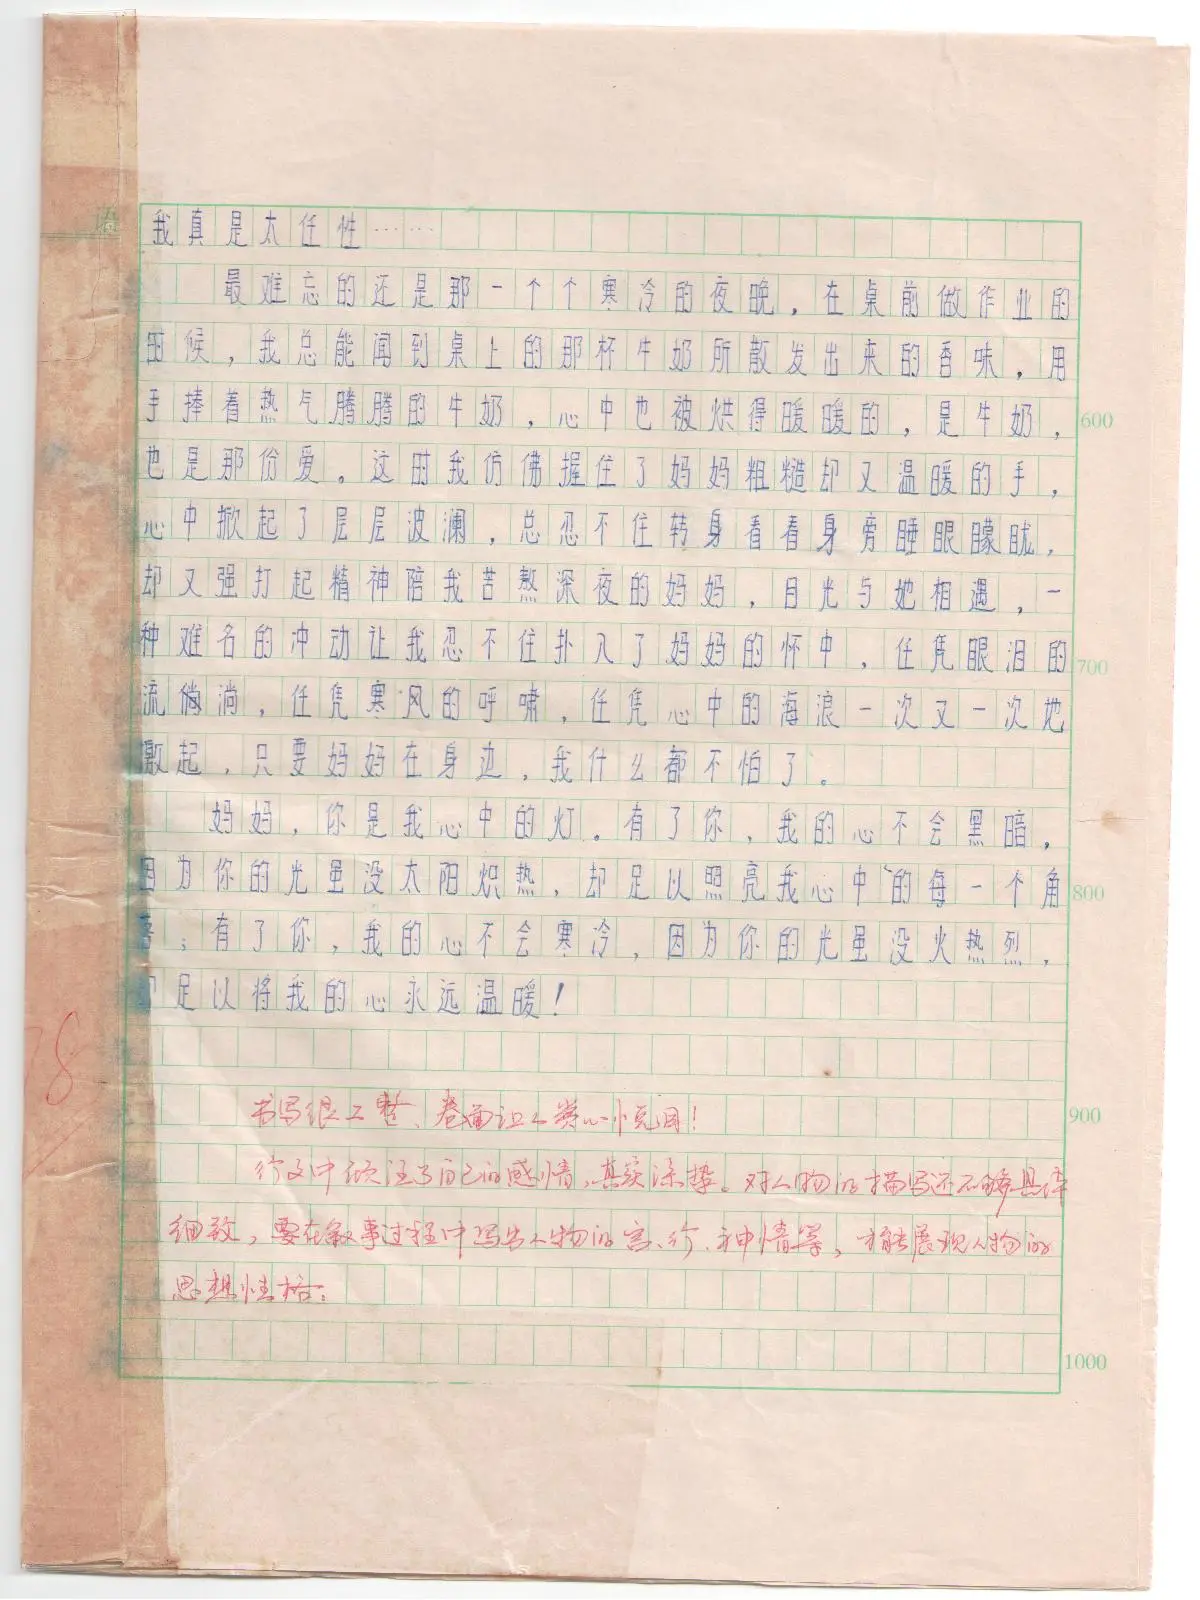 我真是太任性……
最难忘的还是那一个个寒冷的夜晚，在桌前做作业的
时候，我总能闻到桌上的那杯牛奶所散发出来的香味，用
手捧着热气腾腾的牛奶，心中也被烘得暖暖的，是牛奶，
600
也是那份爱。这时我仿佛握住了妈妈粗糙却又温暖的手，
心中掀起了层层波澜，总忍不住转身看看身旁睡眼朦胧，
却又强打起精神陪我苦熬深夜的妈妈，目光与她相遇，一
种难名的冲动让我忍不住扑入了妈妈的怀中，任凭眼泪的
700
流淌，任凭寒风的呼啸，任凭心中的海浪一次又一次地
激起，只要妈妈在身边，我什么都不怕了。
妈妈，你是我心中的灯。有了你，我的心不会黑暗，
因为你的光虽没太阳炽热，却足以照亮我心中的每一个角
800
落；有了你，我的心不会寒冷，因为你的光虽没火热烈，
却足以将我的心永远温暖！
78
书写很工整、卷面让人赏心悦目！
900
行文中倾注了自己的感情，真实深挚。对人物的描写还不够具体
细致，要在叙事过程中写出人物的言、行、神情等，才能展现人物的
思想性格。
1000